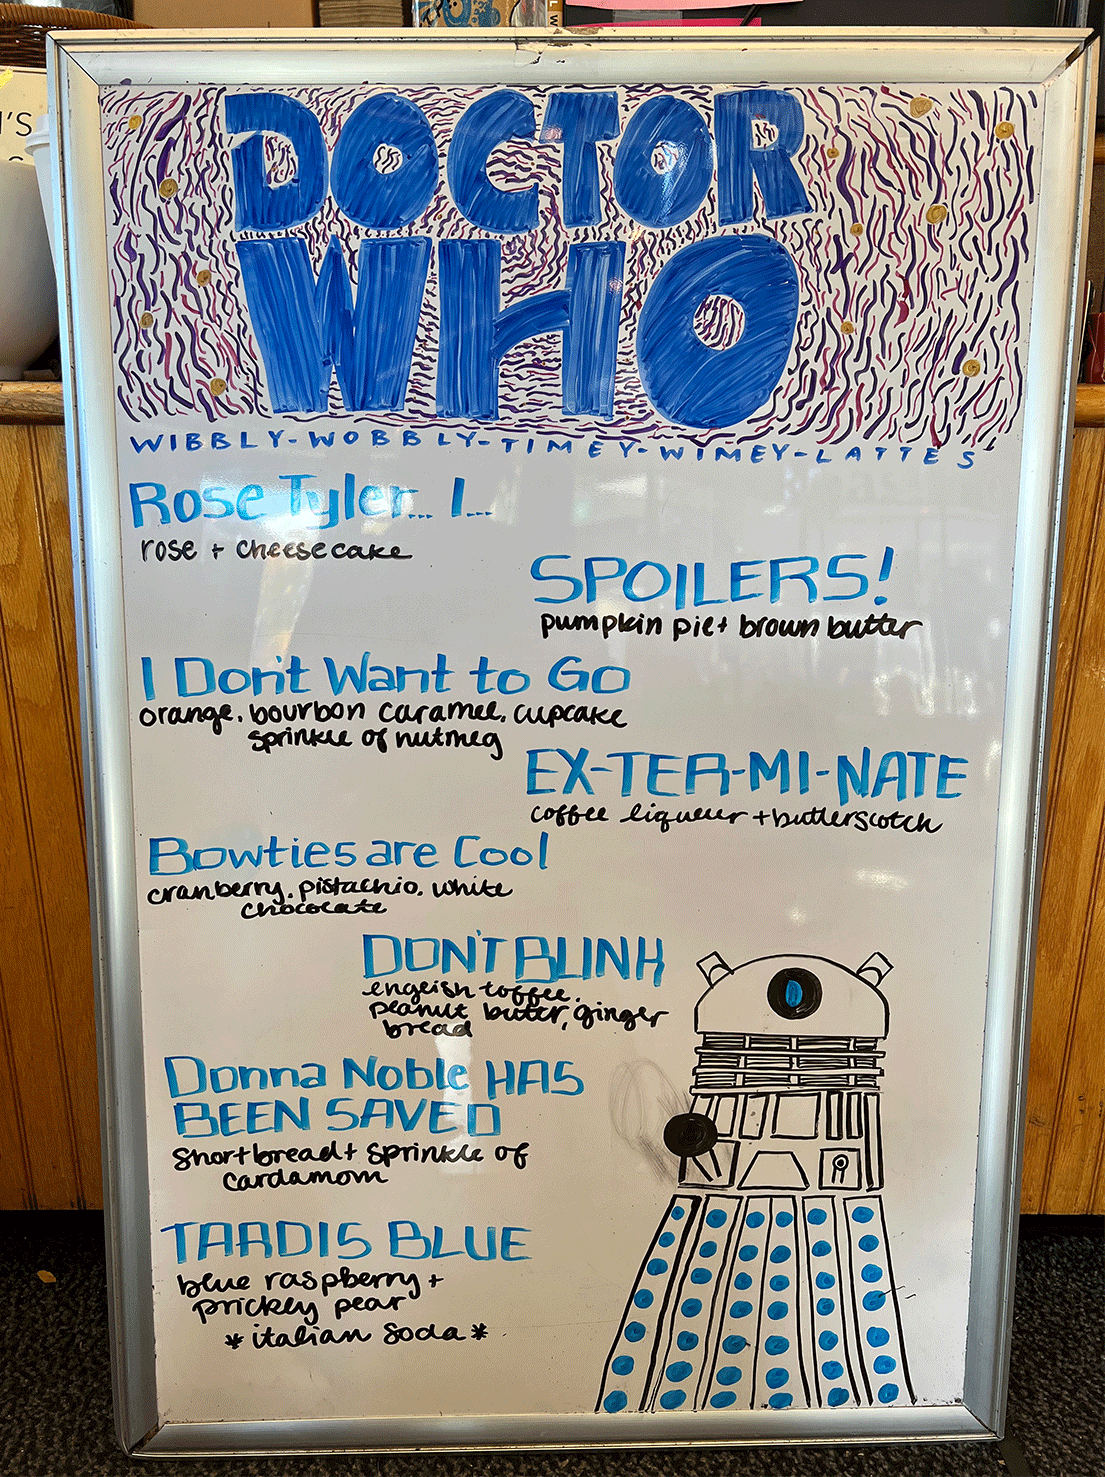 DOCTOR
WHO
WIBBLY-WOBBLY-TIMEY-WIMEY-LATTES
Rose Tyler... I...
rose + cheesecake
SPOILERS!
pumpkin pie + brown butter
I Don't Want to Go
orange, bourbon caramel, cupcake
sprinkle of nutmeg
EX-TER-MI-NATE
coffee liqueur + butterscotch
Bowties are Cool
cranberry, pistachio, white
chocolate
DON'T BLINK
english toffee,
peanut butter, ginger
bread
Donna Noble HAS
BEEN SAVED
shortbread + sprinkle of
cardamom
TARDIS BLUE
blue raspberry +
prickly pear
*italian soda*